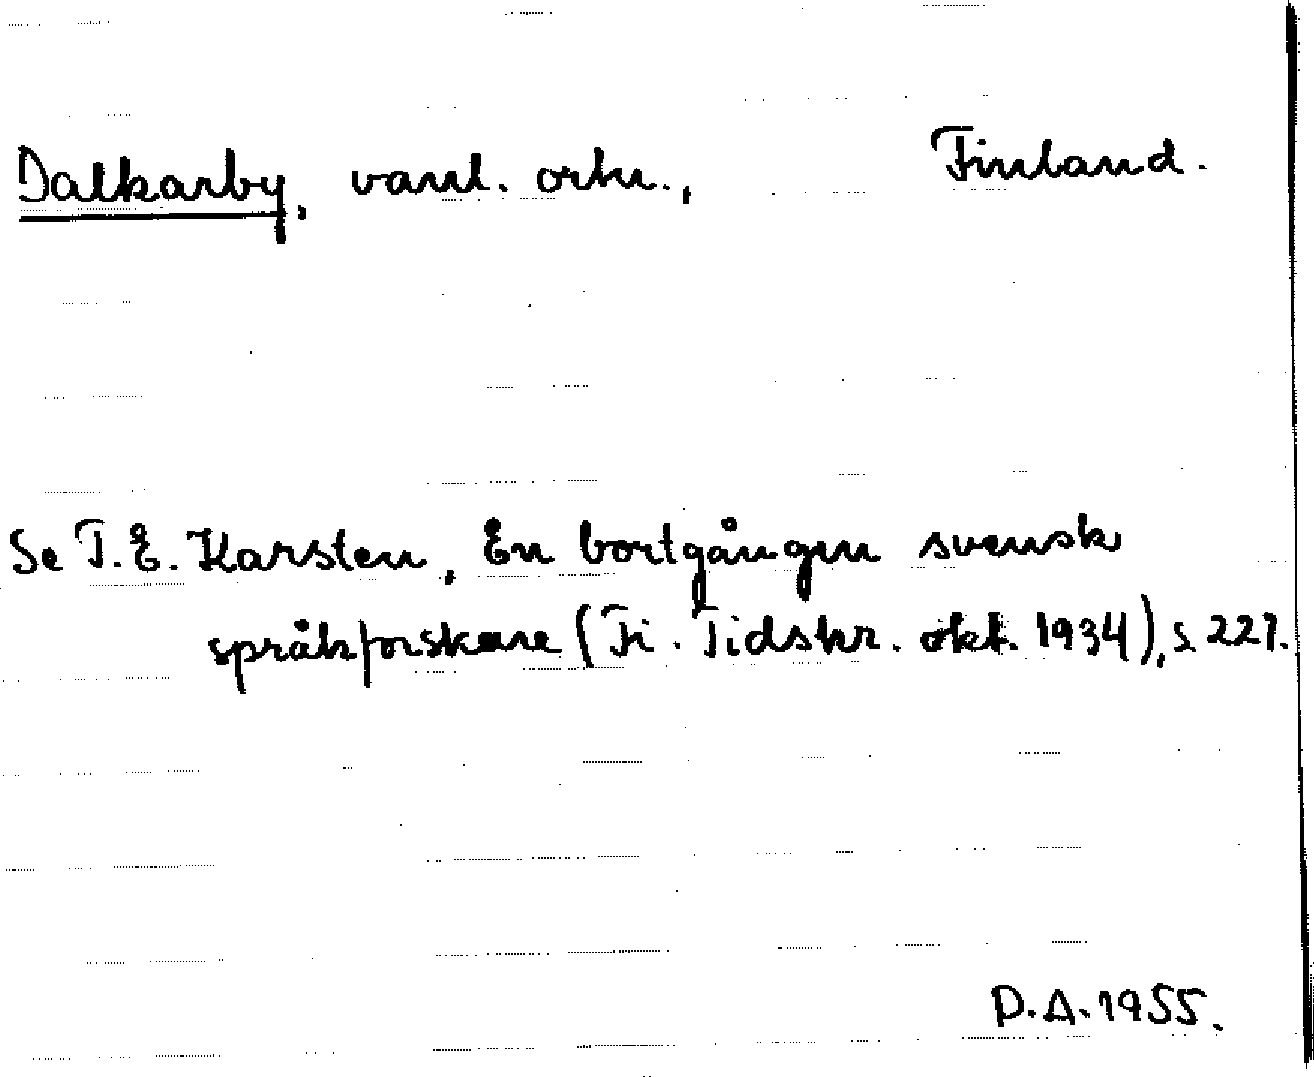 Dalkarby, vanl. ortn., Finland.
Se T. E. Karsten, En bortgången svensk
språkforskare (Fi. Tidskr. okt. 1934), s 227.
D.A. 1955.